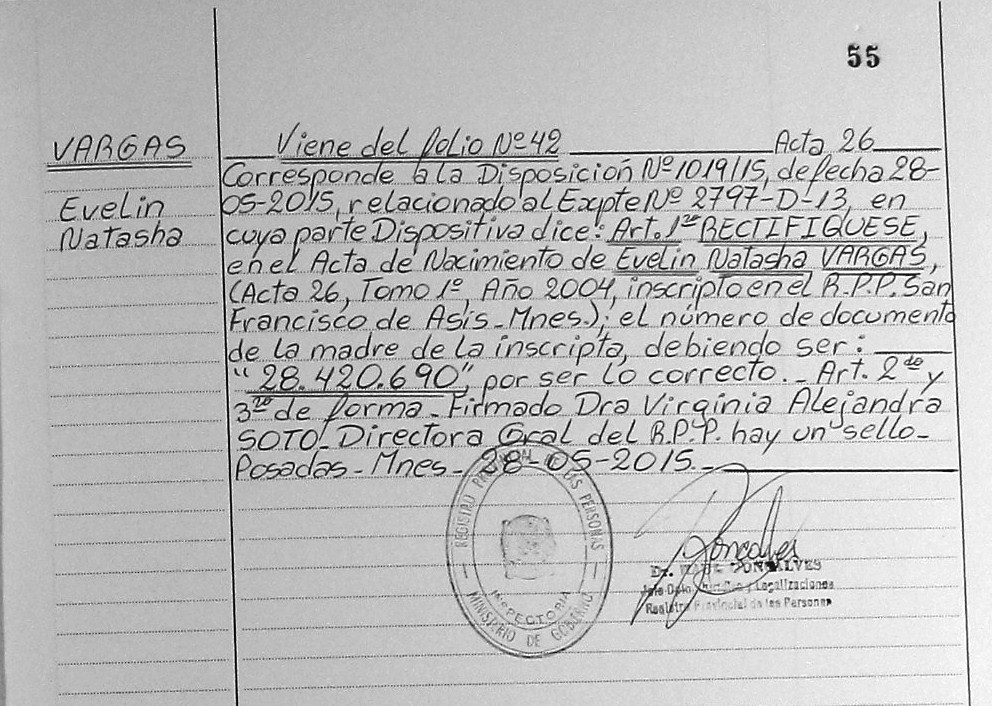 55
VARGAS
Evelin
Natasha
Viene del folio Nº 42 Acta 26
Corresponde a la Disposición Nº 1019/15, de fecha 28-
05-2015, relacionado al Expte Nº 2797-D-13, en
cuya parte Dispositiva dice: Art. 1ro RECTIFIQUESE,
en el Acta de Nacimiento de Evelin Natasha VARGAS,
(Acta 26, Tomo 1º, Año 2004, inscripto en el R.P.P. San
Francisco de Asis - Mnes.); el número de documento
de la madre de la inscripta, debiendo ser:
"28.420.690", por ser lo correcto. - Art. 2do y
3ro de forma - Firmado Dra Virginia Alejandra
SOTO - Directora Gral del R.P.P. hay un sello -
Posadas - Mnes - 28-05-2015. -
REGISTRO PROVINCIAL DE LAS PERSONAS
INSPECTORIA
MINISTERIO DE GOBIERNO
Goncalves
GONSALVES
Jefe Dpto. y Legalizaciones
Registro Provincial de las Personas